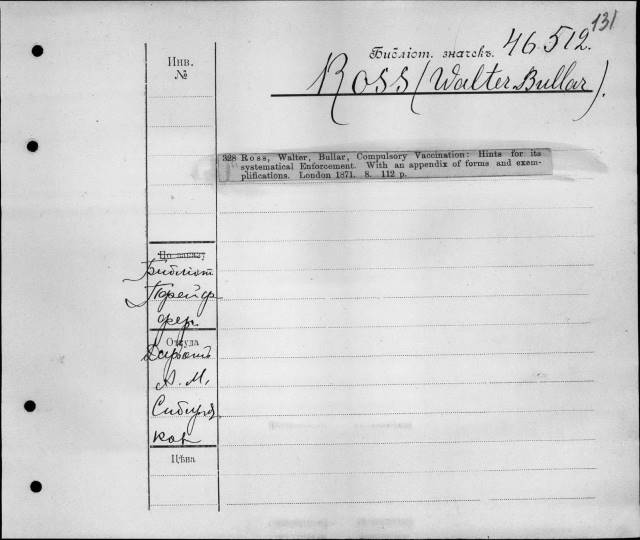 131
Библіот. значекъ. 46.512.
Ross (Walter Bullar).
Инв.
№
328 Ross, Walter, Bullar, Compulsory Vaccination: Hints for its
systematical Enforcement. With an appendix of forms and exem-
plifications. London 1871. 8. 112 p.
По заказу
Библіот
Пфейф
фер.
Откуда
А. М.
Сибиря
ков
Цѣна